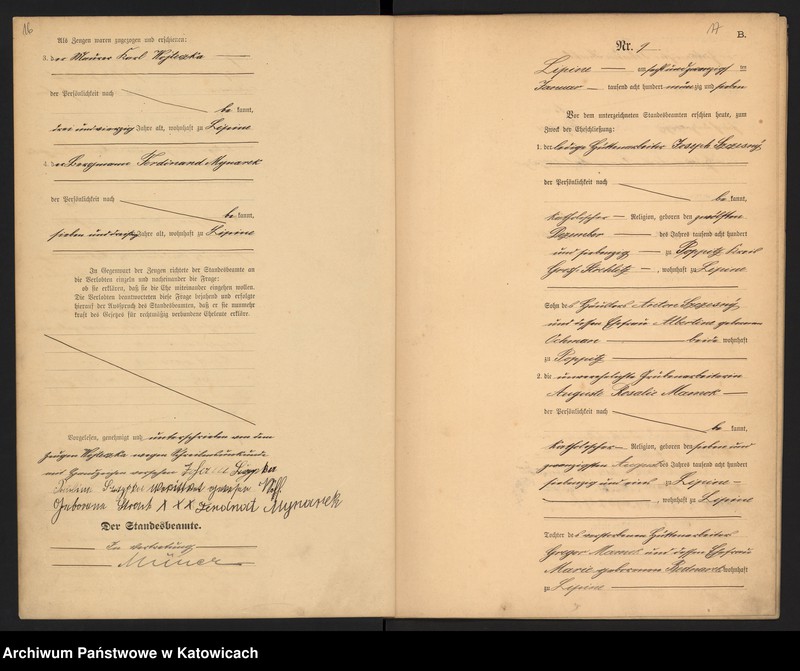 16
Als Zeugen waren zugezogen und erschienen:
3. der Maurer Karl Wojtczka
der Persönlichkeit nach
be kannt,
drei und vierzig Jahre alt, wohnhaft zu Lipine
4. der Bergmann Ferdinand Mynarek
der Persönlichkeit nach
be kannt,
sieben und dreißig Jahre alt, wohnhaft zu Lipine
In Gegenwart der Zeugen richtete der Standesbeamte an
die Verlobten einzeln und nacheinander die Frage:
ob sie erklären, daß sie die Ehe miteinander eingehen wollen.
Die Verlobten beantworteten diese Frage bejahend und erfolgte
hierauf der Ausspruch des Standesbeamten, daß er sie nunmehr
kraft des Gesetzes für rechtmäßig verbundene Eheleute erkläre.
Vorgelesen, genehmigt und unterschrieben von dem
Zeugen Wojtczka wegen Schreibensunkunde
mit Handzeichen versehen
verwittwet gewesene
Geborene XXX Ferdinad Mynarek
Der Standesbeamte.
In Vertretung
17
B.
Nr. 9
Lipine am sechs und zwanzigsten
Januar tausend acht hundert neunzig und sieben
Vor dem unterzeichneten Standesbeamten erschien heute, zum
Zweck der Eheschließung:
1. der ledige Hüttenarbeiter Joseph Szczesny
der Persönlichkeit nach
be kannt,
katholischer Religion, geboren den zwölften
Dezember des Jahres tausend acht hundert
und siebenzig zu Poppitz, Kreis
Groß Strehlitz, wohnhaft zu Lipine
Sohn des Häuslers Anton Szczesny
und dessen Ehefrau Albertine geborenen
Ochmann beide wohnhaft
zu Poppitz
2. die unverehelichte Grubenarbeiterin
Auguste Rosalie Mamok
der Persönlichkeit nach
be kannt,
katholischer Religion, geboren den sieben und
zwanzigsten August des Jahres tausend acht hundert
siebenzig und vier zu Lipine
, wohnhaft zu Lipine
Tochter des verstorbenen Hüttenarbeiters
Gregor Mamok und dessen Ehefrau
Marie geborenen Bednarek wohnhaft
zu Lipine
Archiwum Państwowe w Katowicach